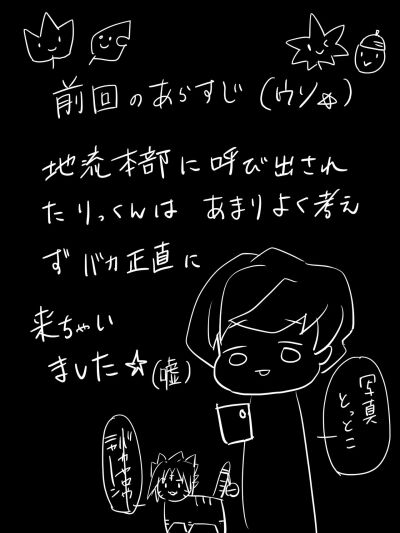 前回のあらすじ(ウソ
地流本部に呼び出され
たりっくんは あまりよく考え
ず バカ正直に
来ちゃい
ました☆(嘘)
写真
とっとこ